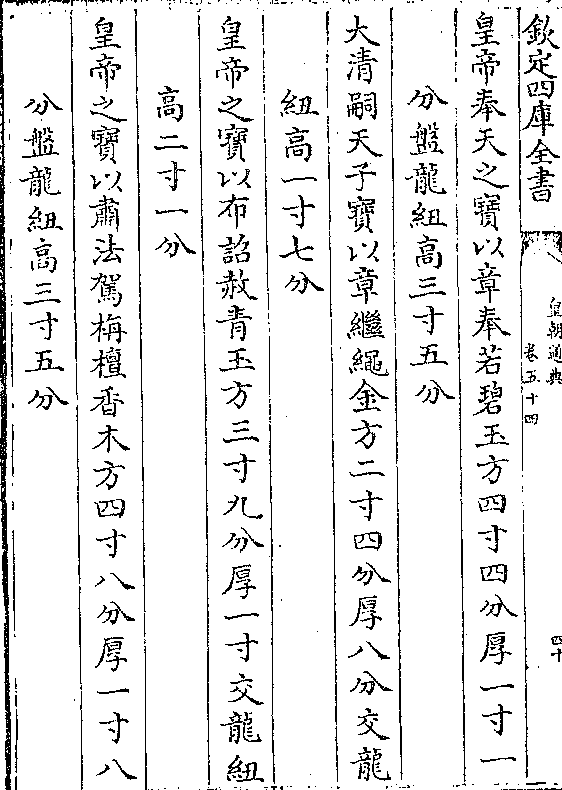 欽定四庫全書
皇朝通典
卷五十四
四十
皇帝奉天之寶以章奉若碧玉方四寸四分厚一寸一
分盤龍紐高三寸五分
大清嗣天子寶以章繼繩金方二寸四分厚八分交龍
紐高一寸七分
皇帝之寶以布詔赦青玉方三寸九分厚一寸交龍紐
高二寸一分
皇帝之寶以肅法駕栴檀香木方四寸八分厚一寸八
分盤龍紐高三寸五分